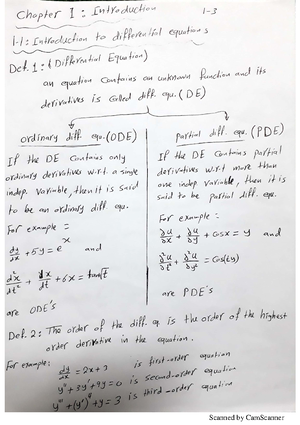 Chapter 1: Introduction 1-3
1-1: Introduction to differential equations
Def. 1: (Differential Equation)
an equation contains an unknown function and its
derivatives is called diff. equ. (DE)
ordinary diff. equ. (ODE)
If the DE contains only
ordinary derivatives w.r.t. a single
indep. variable, then it is said
to be an ordinary diff. equ.
For example:
dy/dx + 5y = e^x and
d²x/dt² + dx/dt + 6x =
are ODE's
partial diff. equ. (PDE)
If the DE contains partial
derivatives w.r.t more than
one indep variable, then it is
said to be partial diff. equ.
For example:
∂u/∂x + ∂u/∂y + cosx = y and
∂²u/∂t² + ∂²u/∂y² =
are PDE's
Def. 2: The order of the diff. eq. is the order of the highest
order derivative in the equation.
For example:
dy/dx = 2x + 3 is first-order equation
y'' + 3y' + 9y = 0 is second-order equation
is third-order equation
Scanned by CamScanner